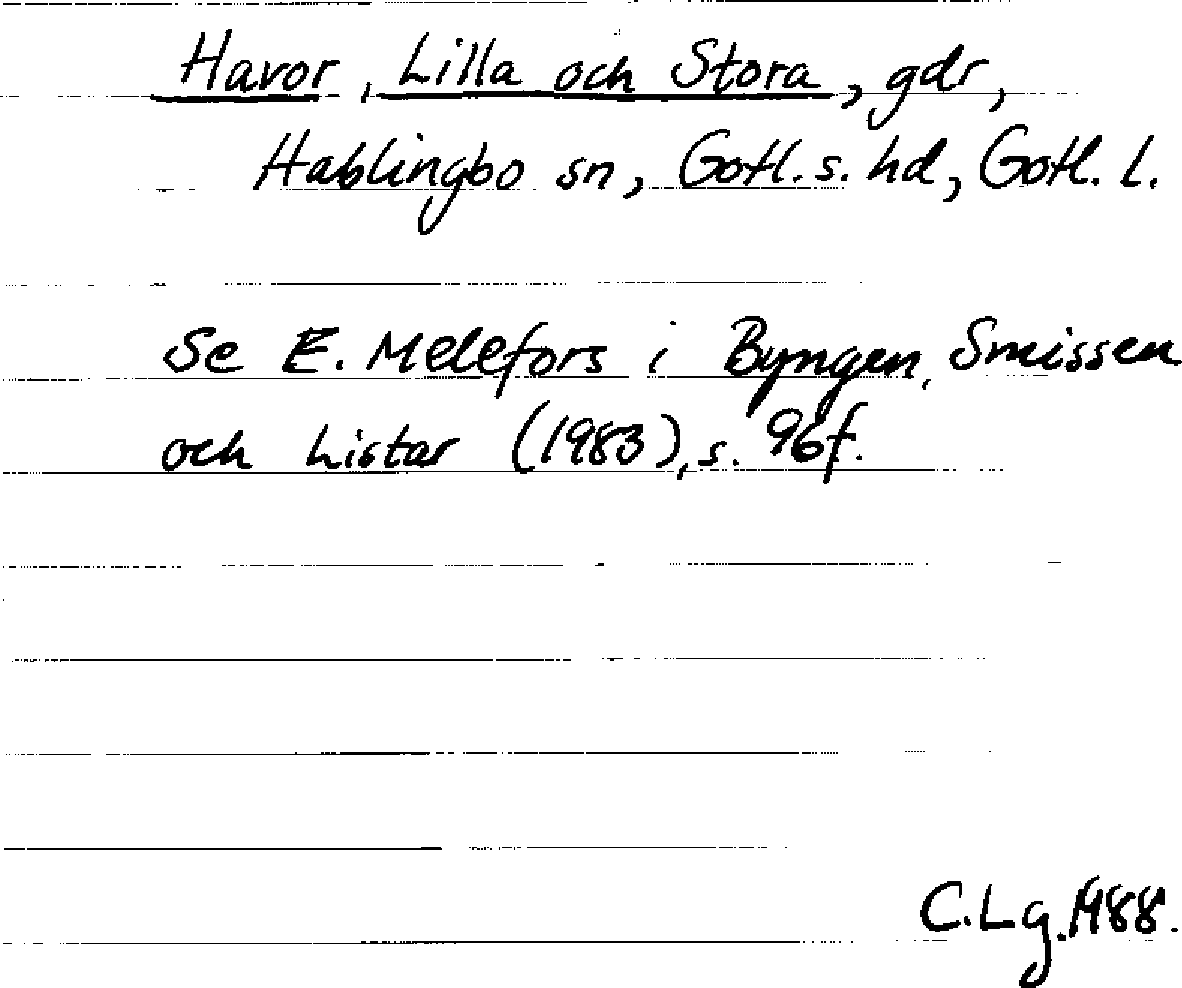 Havor, Lilla och Stora, gdr,
Hablingbo sn, Gotl. s. hd, Gotl. l.
Se E. Melefors i Byngen, Smissen
och Listar (1983), s. 96f.
C.Lg. 1988.